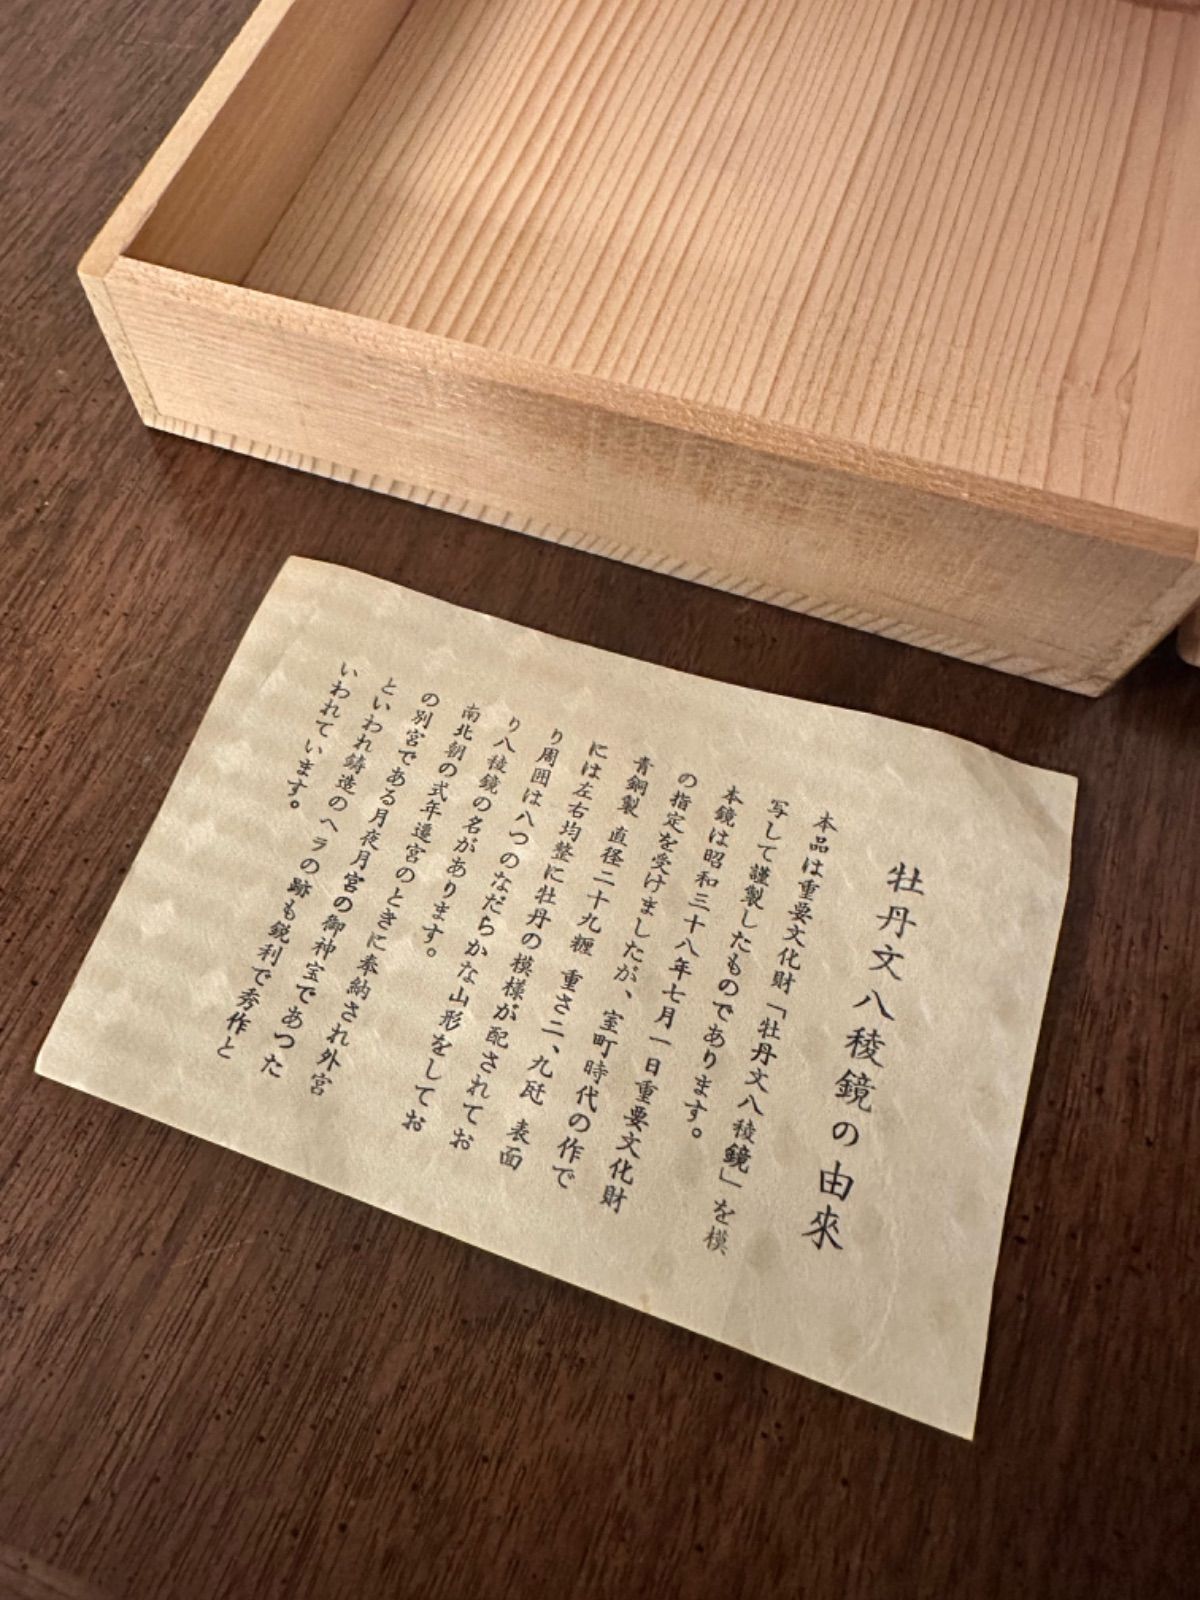 牡丹文八稜鏡の由來
本品は重要文化財「牡丹文八稜鏡」を模
写して謹製したものであります。
本鏡は昭和三十八年七月一日重要文化財
の指定を受けましたが、室町時代の作で
青銅製 直径二十九糎 重さ二、九瓩 表面
には左右均整に牡丹の模様が配されてお
り周囲は八つのなだらかな山形をしてお
り八稜鏡の名があります。
南北朝の式年遷宮のときに奉納され外宮
の別宮である月夜月宮の御神宝であつた
といわれ鋳造のヘラの跡も鋭利で秀作と
いわれています。